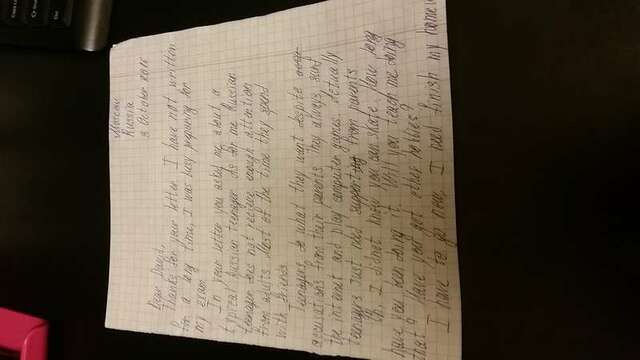 Moscow
Russia
3 October 2015
Dear David,
Thanks for your letter. I have not written
for a long time, I was busy preparing for
my exam.
In your letter you asked me about a
typical Russian teenager. As for me Russian
teenager does not receive enough attention
from adults. Most of the time they spend
with friends.
Teenagers do what they want despite
from their parents. They always surf
the internet and play computer games. Actually
teenagers just need support from parents.
I didnot know you can skate. how long
have you been doing it? Will you teach me doing
that? Have you got other hobbies?
I have to go now. I need finish my home